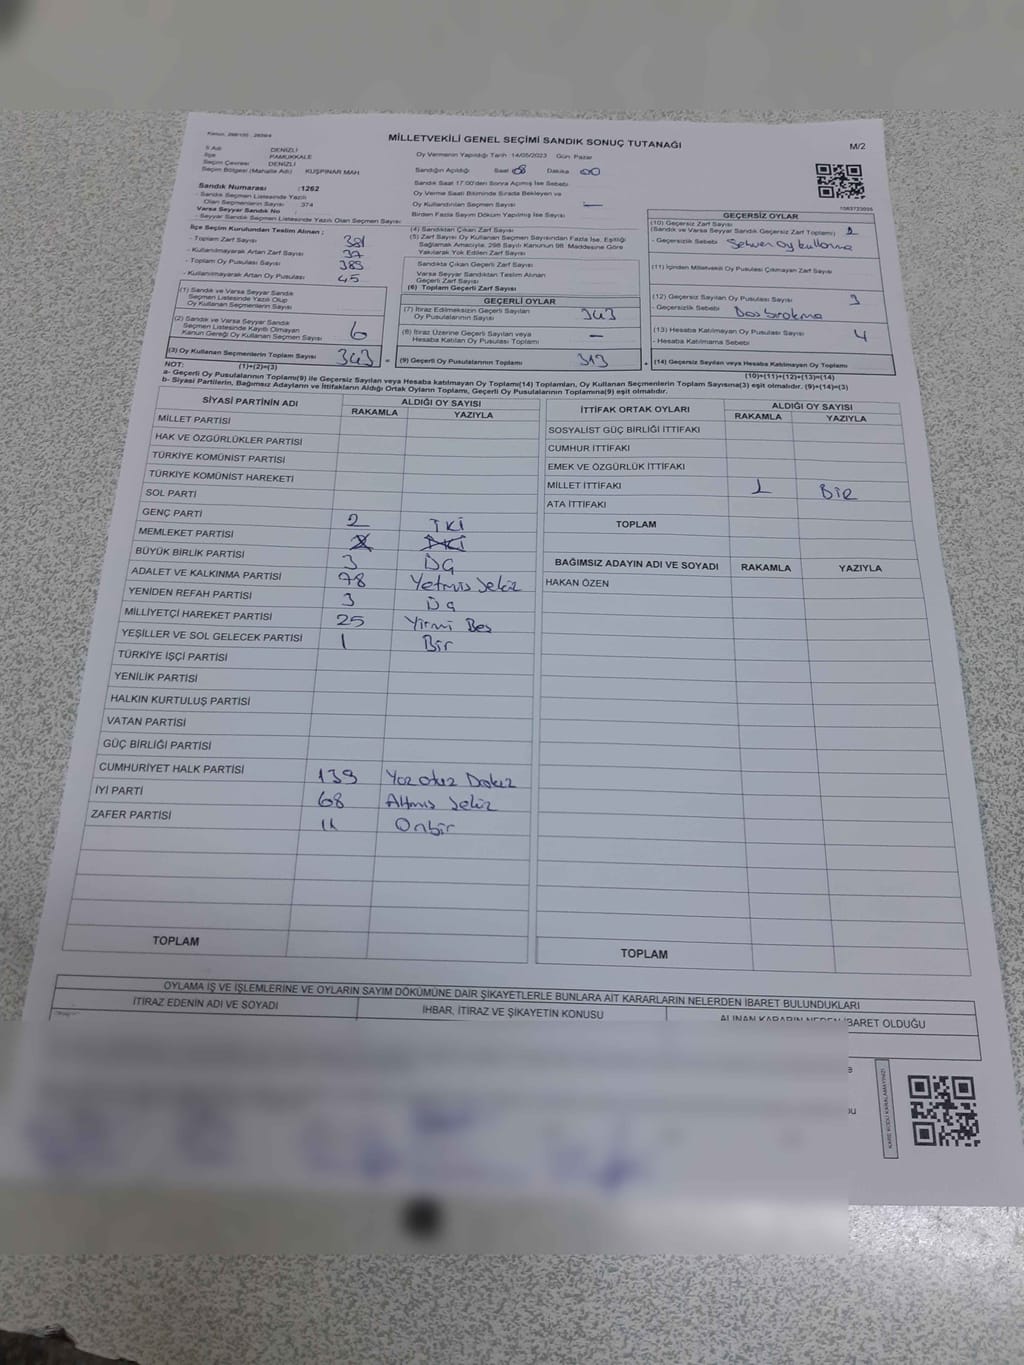 Kanun, 298/105 , 2839/4
MİLLETVEKİLİ GENEL SEÇİMİ SANDIK SONUÇ TUTANAĞI
M/2
İl Adı DENİZLİ
İlçe PAMUKKALE
Seçim Çevresi DENİZLİ
Seçim Bölgesi (Mahalle Adı) KUŞPINAR MAH
Sandık Numarası :1262
Sandık Seçmen Listesinde Yazılı
Olan Seçmenlerin Sayısı 374
Varsa Seyyar Sandık No
- Seyyar Sandık Seçmen Listesinde Yazılı Olan Seçmen Sayısı
Oy Vermenin Yapıldığı Tarih :14/05/2023 Gün Pazar
Sandığın Açıldığı Saat 08 Dakika 00
Sandık Saat 17.00'den Sonra Açılmış İse Sebebi
Oy Verme Saati Bitiminde Sırada Bekleyen ve
Oy Kullandırılan Seçmen Sayısı —
Birden Fazla Sayım Döküm Yapılmış İse Sayısı
İlçe Seçim Kurulundan Teslim Alınan :
- Toplam Zarf Sayısı 381
- Kullanılmayarak Artan Zarf Sayısı 37
- Toplam Oy Pusulası Sayısı 389
- Kullanılmayarak Artan Oy Pusulası 45
(1) Sandık ve Varsa Seyyar Sandık
Seçmen Listesinde Yazılı Olup
Oy Kullanan Seçmenlerin Sayısı
(2) Sandık ve Varsa Seyyar Sandık
Seçmen Listesinde Kayıtlı Olmayan
Kanun Gereği Oy Kullanan Seçmen Sayısı 6
(3) Oy Kullanan Seçmenlerin Toplam Sayısı 343
(1)+(2)=(3)
(4) Sandıktan Çıkan Zarf Sayısı
(5) Zarf Sayısı Oy Kullanan Seçmen Sayısından Fazla İse, Eşitliği
Sağlamak Amacıyla, 298 Sayılı Kanunun 98. Maddesine Göre
Yakılarak Yok Edilen Zarf Sayısı
Sandıkta Çıkan Geçerli Zarf Sayısı
Varsa Seyyar Sandıktan Teslim Alınan
Geçerli Zarf Sayısı
(6) Toplam Geçerli Zarf Sayısı
GEÇERLİ OYLAR
(7) İtiraz Edilmeksizin Geçerli Sayılan
Oy Pusulalarının Sayısı 343
(8) İtiraz Üzerine Geçerli Sayılan veya
Hesaba Katılan Oy Toplamı —
= (9) Geçerli Oy Pusulalarının Toplamı
GEÇERSİZ OYLAR
(10) Geçersiz Zarf Sayısı
(Sandık ve Varsa Seyyar Sandık Geçersiz Zarf Toplamı)
- Geçersizlik Sebebi
(11) İçinden Milletvekili Oy Pusulası Çıkmayan Zarf Sayısı
(12) Geçersiz Sayılan Oy Pusulası Sayısı 9
- Geçersizlik Sebebi
(13) Hesaba Katılmayan Oy Pusulası Sayısı 4
- Hesaba Katılmama Sebebi
+ (14) Geçersiz Sayılan veya Hesaba Katılmayan Oy Toplamı
(10)+(11)+(12)+(13)=(14)
NOT:
a- Geçerli Oy Pusulalarının Toplamı(9) ile Geçersiz Sayılan veya Hesaba katılmayan Oy Toplamı(14) Toplamları, Oy Kullanan Seçmenlerin Toplam Sayısına(3) eşit olmalıdır. (9)+(14)=(3)
b- Siyasi Partilerin, Bağımsız Adayların ve İttifakların Aldığı Ortak Oyların Toplamı, Geçerli Oy Pusulalarının Toplamına(9) eşit olmalıdır.
SİYASİ PARTİNİN ADI
ALDIĞI OY SAYISI
RAKAMLA YAZIYLA
MİLLET PARTİSİ
HAK VE ÖZGÜRLÜKLER PARTİSİ
TÜRKİYE KOMÜNİST PARTİSİ
TÜRKİYE KOMÜNİST HAREKETİ
SOL PARTİ
GENÇ PARTİ 2 İKİ
MEMLEKET PARTİSİ
BÜYÜK BİRLİK PARTİSİ 3 Üç
ADALET VE KALKINMA PARTİSİ 78 Yetmiş Sekiz
YENİDEN REFAH PARTİSİ 3 Üç
MİLLİYETÇİ HAREKET PARTİSİ 25 Yirmi Beş
YEŞİLLER VE SOL GELECEK PARTİSİ 1 Bir
TÜRKİYE İŞÇİ PARTİSİ
YENİLİK PARTİSİ
HALKIN KURTULUŞ PARTİSİ
VATAN PARTİSİ
GÜÇ BİRLİĞİ PARTİSİ
CUMHURİYET HALK PARTİSİ 139 Yüz otuz Dokuz
İYİ PARTİ 68 Altmış Sekiz
ZAFER PARTİSİ 11 Onbir
TOPLAM
İTTİFAK ORTAK OYLARI
ALDIĞI OY SAYISI
RAKAMLA YAZIYLA
SOSYALİST GÜÇ BİRLİĞİ İTTİFAKI
CUMHUR İTTİFAKI
EMEK VE ÖZGÜRLÜK İTTİFAKI
MİLLET İTTİFAKI 1 BİR
ATA İTTİFAKI
TOPLAM
BAĞIMSIZ ADAYIN ADI VE SOYADI RAKAMLA YAZIYLA
HAKAN ÖZEN
TOPLAM
OYLAMA İŞ VE İŞLEMLERİNE VE OYLARIN SAYIM DÖKÜMÜNE DAİR ŞİKAYETLERLE BUNLARA AİT KARARLARIN NELERDEN İBARET BULUNDUKLARI
İTİRAZ EDENİN ADI VE SOYADI
İHBAR, İTİRAZ VE ŞİKAYETİN KONUSU
ALINAN KARARIN NEDEN İBARET OLDUĞU
KARE KODU KARALAMAYINIZ